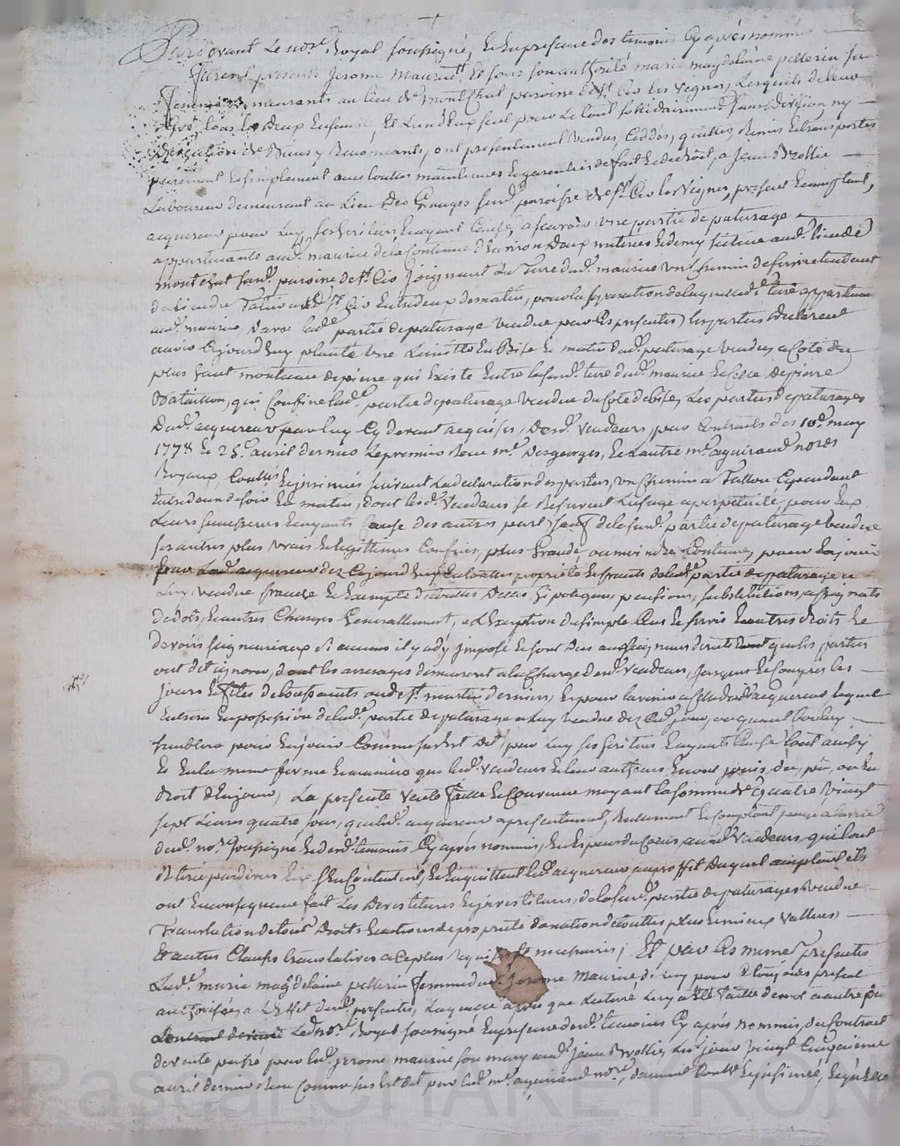 Pardevant Le nore Royal soussigné, et en presence des temoins Cy après nommés
furent presents jerome maurin et sous son authorité marie magdelaine pellerin sa
femme demeurants au lieu de montchal paroisse de st Cio les vignes, Lesquels de leur
gré tous les deux ensemble, et l'un d'eux seul pour le tout solidairement sans division ny
discution de biens y Renonceants, ont presentement vendus, Ceddes, quittes, Remis et transportes
purement et simplement avec toutes maintenues et garenties de fait et de droit, a jean
Laboureur demeurant au Lieu des Granges paroisse de st Cio les vignes, present et acceptant,
acquereur pour Luy ses heritiers et ayant Cause, a scavoir une partie de paturage
appartenante aud. maurin de la Contenue d'environ deux metieres et demy scituee aud. lieu de
montchal susd. paroisse de st Cio joignant La Terre dud. maurin un chemin de service tendant
de entre deux de matin, pour la separation de laquelle de terre appartenant
aud. maurin d'avec lad. partie de paturage vendue par les presentes Les parties declarent
avoir Cejourd'huy planté une Limitte En Bise et matin dud. paturage vendus a Coté du
plus haut monceau de pierre qui existe Entre la susd. terre dud. maurin et celle de pierre
qui Confine lad. partie de paturage vendue du Coté de bise, Les parties de paturages
Dud. acquereur par luy Cy devant acquises, Desd. vendeurs, par Contrats des 10e may
1778 et 25e avril dernier Le premier Reçu me Desgeorges, et L'autre me aguiraud nores
Royaux, Contrôlés suivant La declaration des parties, un chemin a Tallon Cependant
entre deux de soir et matin, dont lesd. vendeurs se Reservent L'usage a perpetuité, pour Eux
Leurs successeurs et ayants Cause des autres parts, sauf de la susd. partie de paturage vendue
ses autres plus vrais et legitimes Confins, plus Grande, ou moindre Contenue, pour en jouir
pour Led. acquereur dez Cejourd'huy En toutte proprieté et fruits de lad. partie de paturage a
Luy vendue franche et Exempte de touttes Dettes hipoteques, pensions, substitutions, assignats
de dots, et autres Charges generallement, a L'exception du simple Cens et servis et autres droits et
devoirs seigneuriaux si aucuns il y a d'y imposé et sont deus aux seigneurs directs dont quels les parties
ont dit ignorer, dont les arrerages demeurent a la Charge desd. vendeurs, jusques et Compris les
jours et fetes de toussaints ou de st martin dernier, et pour l'avenir a Celle dud. acquereur lequel
entrera En possession de lad. partie de paturage a Luy vendue dez Ced. jour, ou quand bon luy
semblera pour En jouir Comme sus est dit, par Luy ses heritiers et ayants Cause tout ainsy
et En la meme forme et maniere que lesd. vendeurs et leurs autheurs En ont jouis, deu, pû, ou eu
droit d'En jouir, La presente vente faitte et Convenue moyant la somme de quatre vingt
sept Livres quatre sous, que led. acquereur a presentement, Reellement et Comptant payé a la vüe
dud. nore soussigné et desd. temoins Cy après nommés, En Especes de Cours auxd. vendeurs qui L'ont
Retirée pardevers Eux s'En Contentent, et En quittent led. acquereur au proffit Duquel aceptant ils
ont En Consequence fait Les Devestitures et investitures, de la susd. partie de paturages vendue
Translation de tous Droits et actions de proprieté donation de touttes plus et mieux vallues
et autres Clauses translatives a Ce plus Requises et necessaires, Et par Ces memes presentes
Lad. marie magdelaine pellerin femme dud. jerome maurin de Luy pour toujours present
authorisée a L'Effet des presentes, Laquelle après que lecture Luy a été faitte de mot a autre du
Led. nore Royal soussigné En presence desd. temoins Cy après nommés, du Contrat
de vente passé par led. jerome maurin son mary aud. jean Le jour vingt Cinquieme
avril dernier Reçu Comme sus est dit par led. me aguiraud nore,